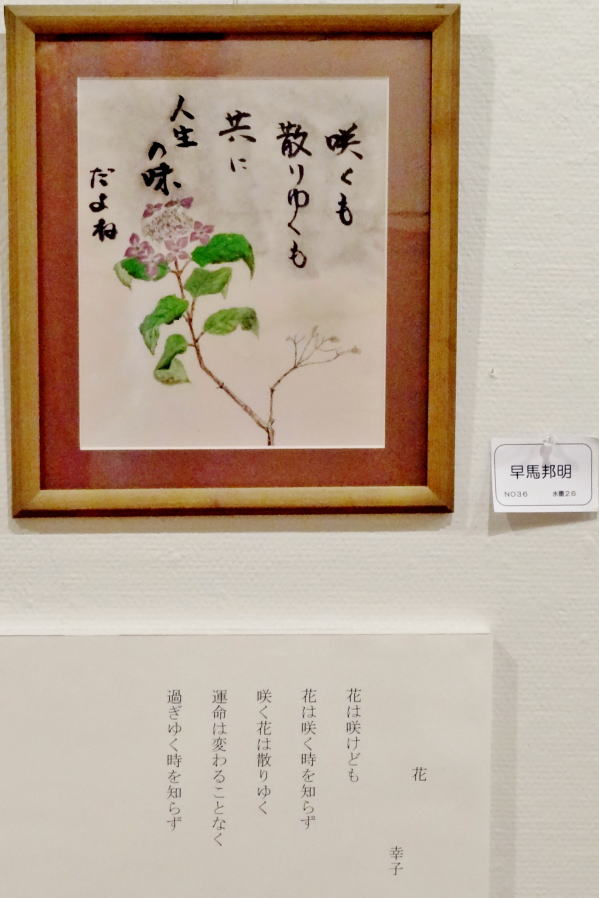 咲くも
散りゆくも
共に
人生
の味
だよね
早馬邦明
NO36 水墨26
花
幸子
花は咲けども
花は咲く時を知らず
咲く花は散りゆく
運命は変わることなく
過ぎゆく時を知らず